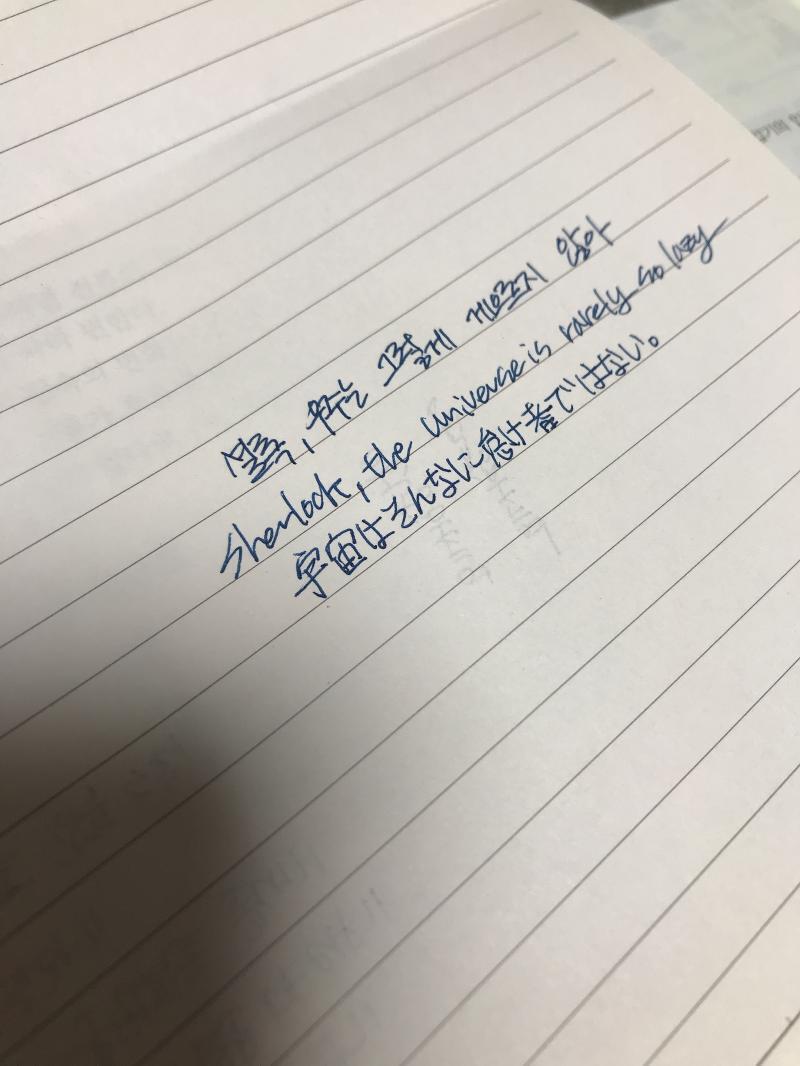 셜록, 우주는 그렇게 게으르지 않아
Sherlock, the universe is rarely so lazy
宇宙はそんなに怠け者ではない。